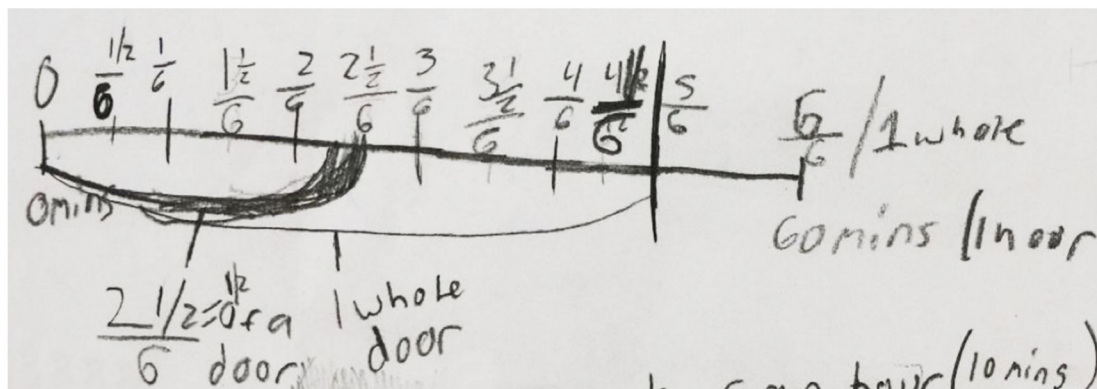 0 1/2/6 1/6 1 1/2/6 2/6 2 1/2/6 3/6 3 1/2/6 4/6 4 1/2/6 5/6 6/6 / 1 whole
0mins 60 mins / 1 hour
2 1/2/6 = 1/2 of a door
1 whole door
an hour (10 mins)